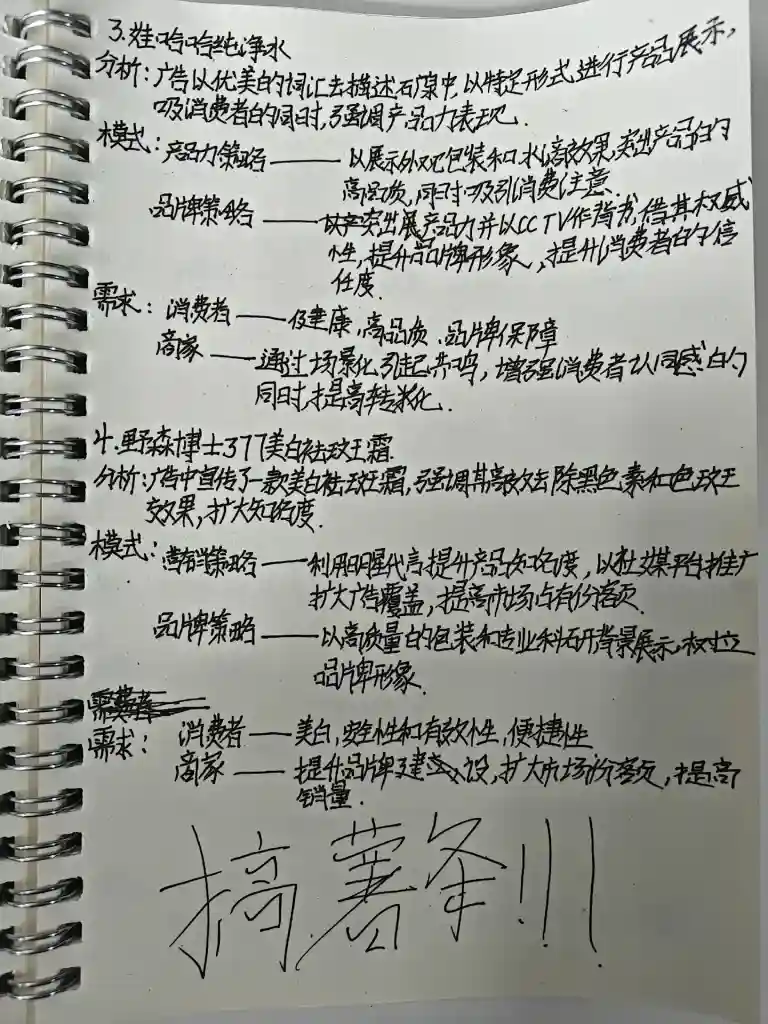 3.娃哈哈纯净水
分析：广告以优美的词汇去描述石门泉中，以特定形式进行产品展示，
吸消费者的同时，强调产品力表现．
模式：产品力策略——以展示外观包装和水滴效果，突出产品的
高品质，同时吸引消费注意．
品牌策略——以突出展产品力并以CCTV作背书，借其权威
性，提升品牌形象，提升消费者的信
任度．
需求：消费者——健康，高品质．品牌保障
商家——通过场景化引起共鸣，增强消费者认同感的
同时，提高转化．
4.野森博士377美白祛斑霜．
分析：广告中宣传了一款美白祛斑霜，强调其高效去除黑色素和色斑
效果，扩大知名度．
模式：营销策略——利用明星代言提升产品知名度，以社媒平台推广
扩大广告覆盖，提高市场占有份额．
品牌策略——以高质量的包装和专业科研背景展示，树立
品牌形象．
需求：消费者——美白，安全性和有效性，便捷性
商家——提升品牌建立人设，扩大市场份额，提高
销量．
搞薯条!!!